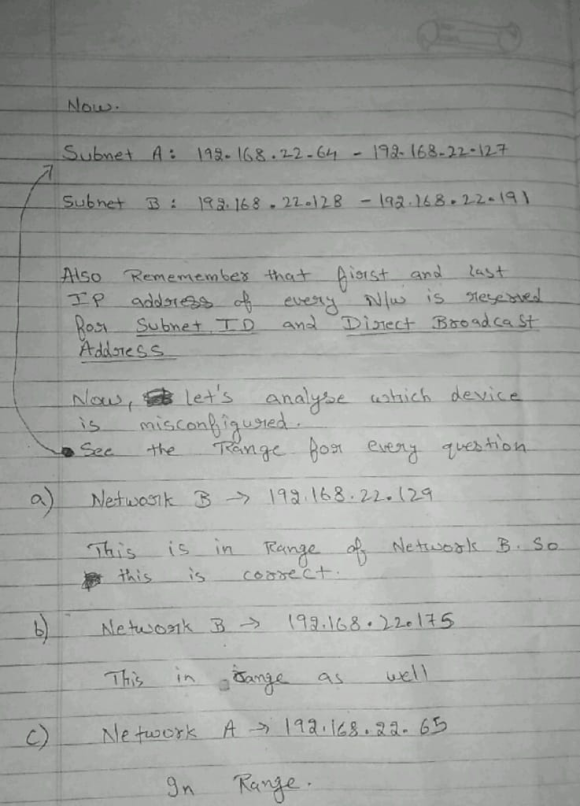 Now.
Subnet A: 192.168.22.64 - 192.168.22.127
Subnet B: 192.168.22.128 - 192.168.22.191
Also Rememember that first and last
IP address of every N/w is reserved
for Subnet ID and Direct Broadcast
Address
Now, let's analyse which device
is misconfigured.
See the Range for every question
a) Network B → 192.168.22.129
This is in Range of Network B. So
this is correct.
b) Network B → 192.168.22.175
This in range as well
c) Network A → 192.168.22.65
In Range.